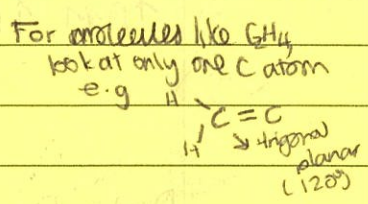 For molecules like C₂H₄,
look at only one C atom
e.g
H
C = C
H
↘ trigonal
planar
(120°)